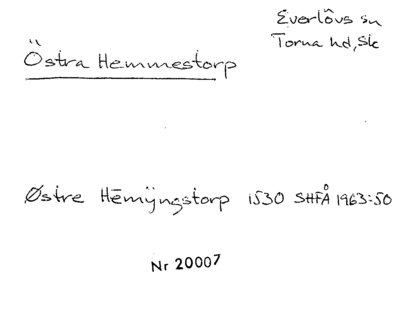 Everlövs sn
Torna hd, Sk
Östra Hemmestorp
Østre Hēmÿngstorp 1530 SHFÅ 1963:50
Nr 20007